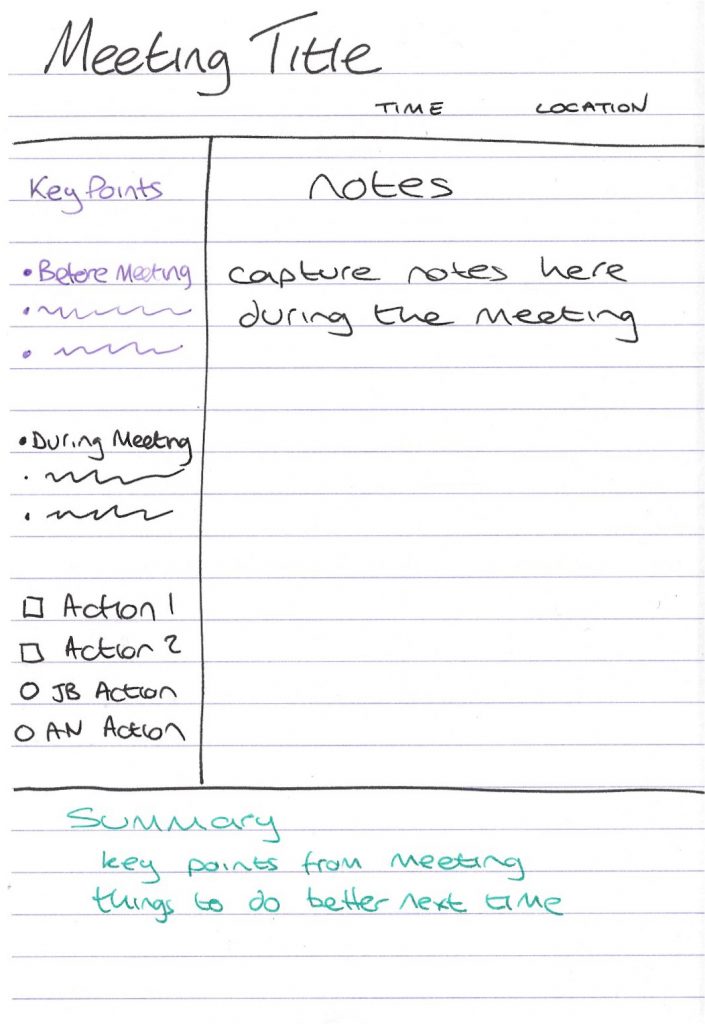 Meeting Title
TIME LOCATION
Key Points
• Before Meeting
• During Meeting
Action 1
Action 2
JB Action
AN Action
notes
capture notes here
during the meeting
Summary
key points from meeting
things to do better next time